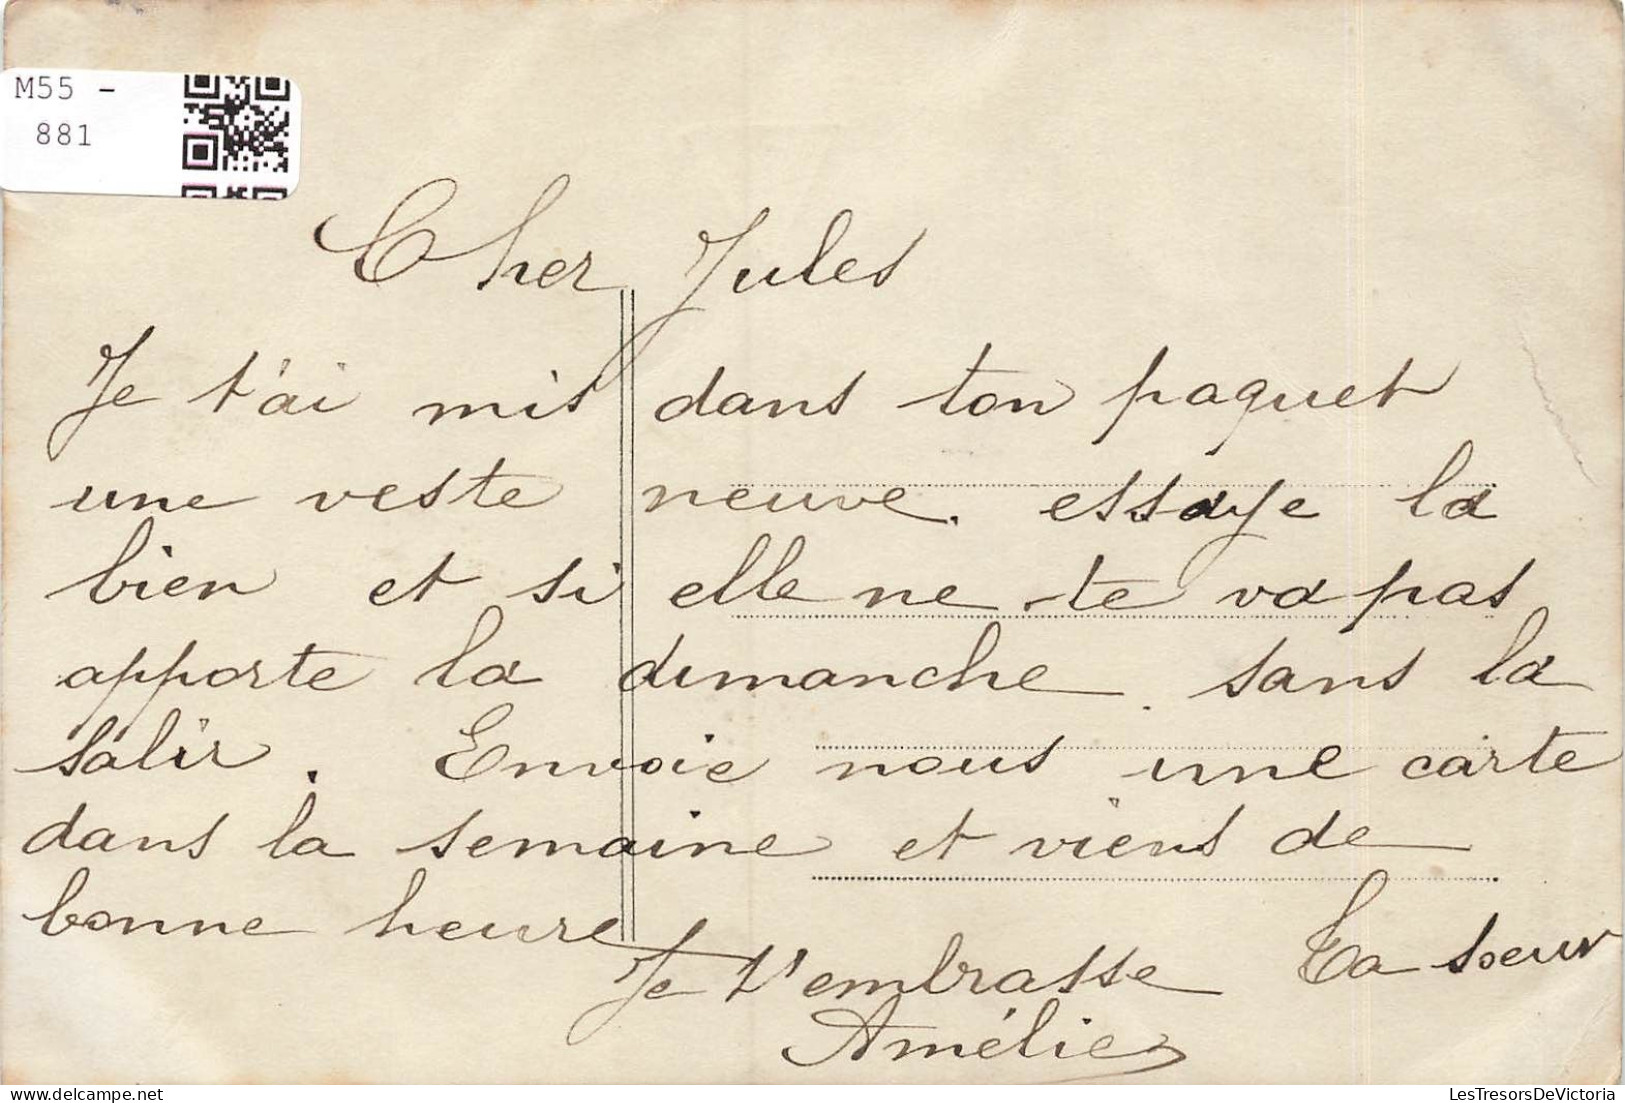 M55 -
881
Cher Jules
Je t'ai mis dans ton paquet
une veste neuve. essaye la
bien et si elle ne te va pas
apporte la dimanche. sans la
salir. Envoie nous une carte
dans la semaine et viens de
bonne heure
Je t'embrasse Ta soeur
Amélie
LesTresorsDeVictoria